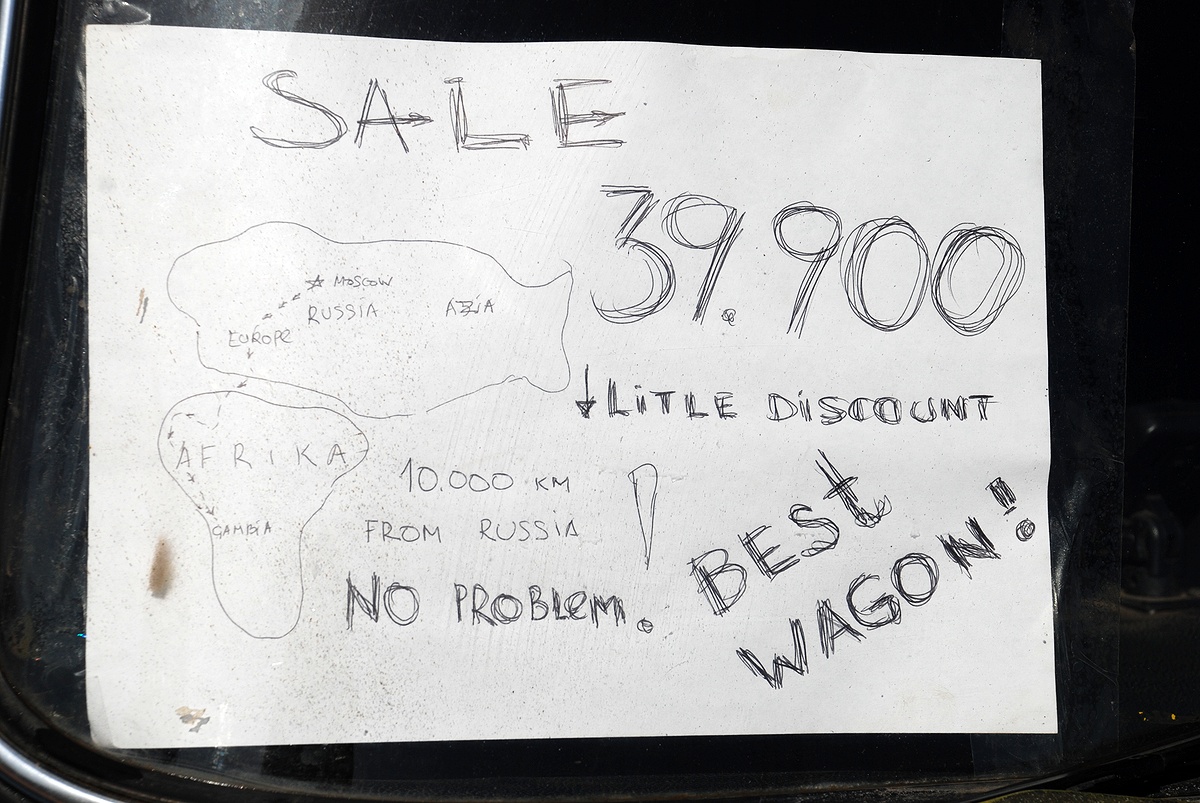 SALE
39.900
MOSCOW
RUSSIA
AZIA
EUROPE
LITLE DISCOUNT
AFRIKA
10.000 KM
FROM RUSSIA
GAMBIA
NO PROBLEM.
BEST
WAGON!